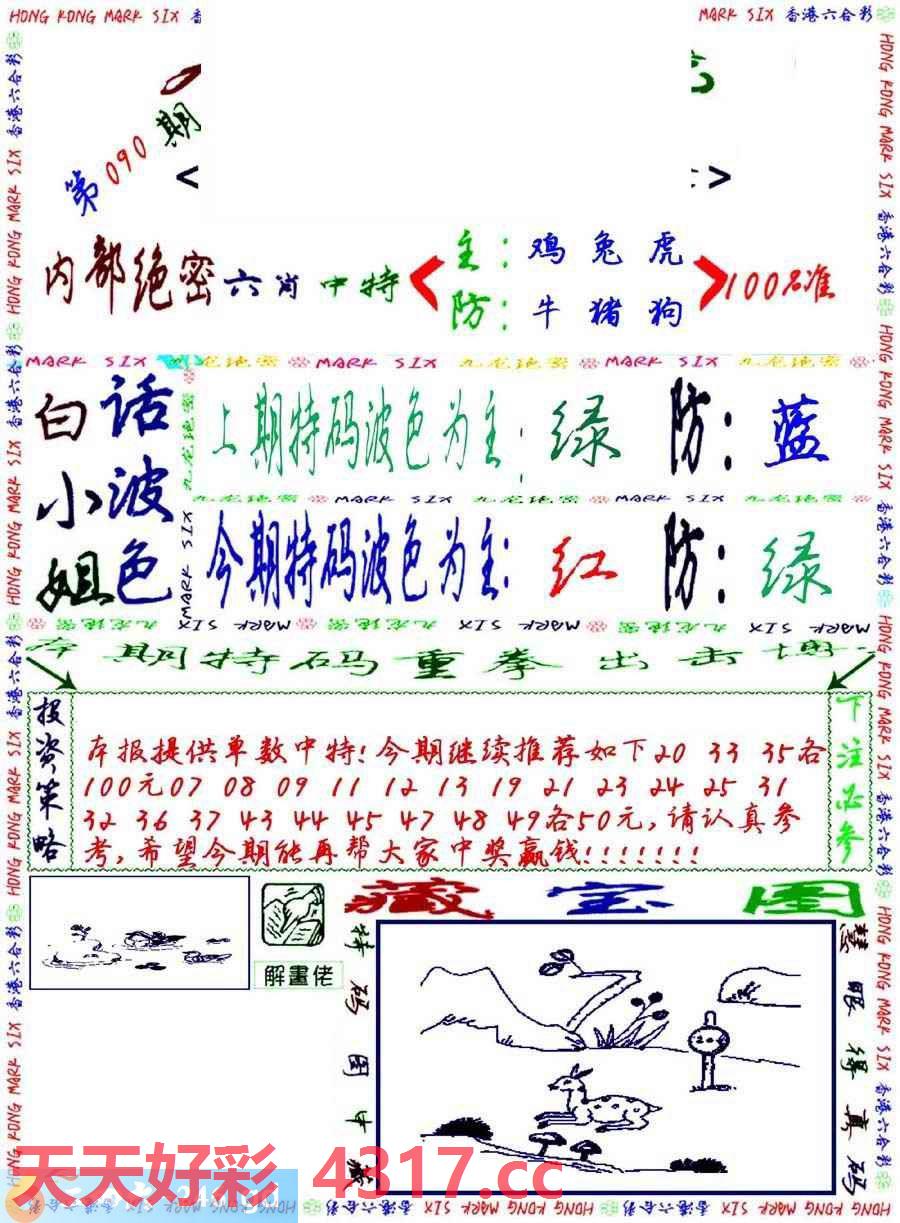 HONG KONG MARK SIX 香
MARK SIX 香港六合彩
第090期
< >
内部绝密六肖中特
主：鸡兔虎
防：牛猪狗
100%准
MARK SIX 九龙绝密 MARK SIX 九龙绝密 MARK SIX 九龙绝密
白话
小波
姐色
上期特码波色为主：绿 防：蓝
九龙绝密 MARK SIX 九龙绝密 MARK SIX 九龙绝密
今期特码波色为主：红 防：绿
九龙绝密 MARK SIX 九龙绝密 MARK SIX 九龙绝密 MARK SIX
本期特码重拳出击
投资策略
本报提供单数中特!今期继续推荐如下20 33 35各
100元07 08 09 11 12 13 19 21 23 24 25 31
32 36 37 43 44 45 47 48 49各50元,请认真参
考,希望今期能再帮大家中奖赢钱!!!!!!!
下注必参
解畫佬
藏宝图
特码图中
慧眼得真码
天天好彩 4317.cc
HONG KONG MARK SIX 香港六合彩